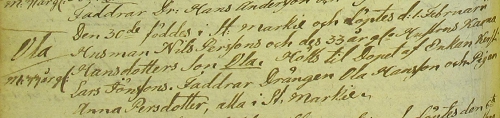 Faddrar Dr: Hans Anderson och
Den 30de föddes i St. Markie och döptes d: 1. Februarii
Ola Husman Nils Persons och dess 33 årige Hustrus Karna
Hansdotters Son Ola. Holts til Dopet af Enkan
Lars Jönsons. Faddrar Drängen Ola Hansson och Pigan
Anna Persdotter, alla i St. Markie.